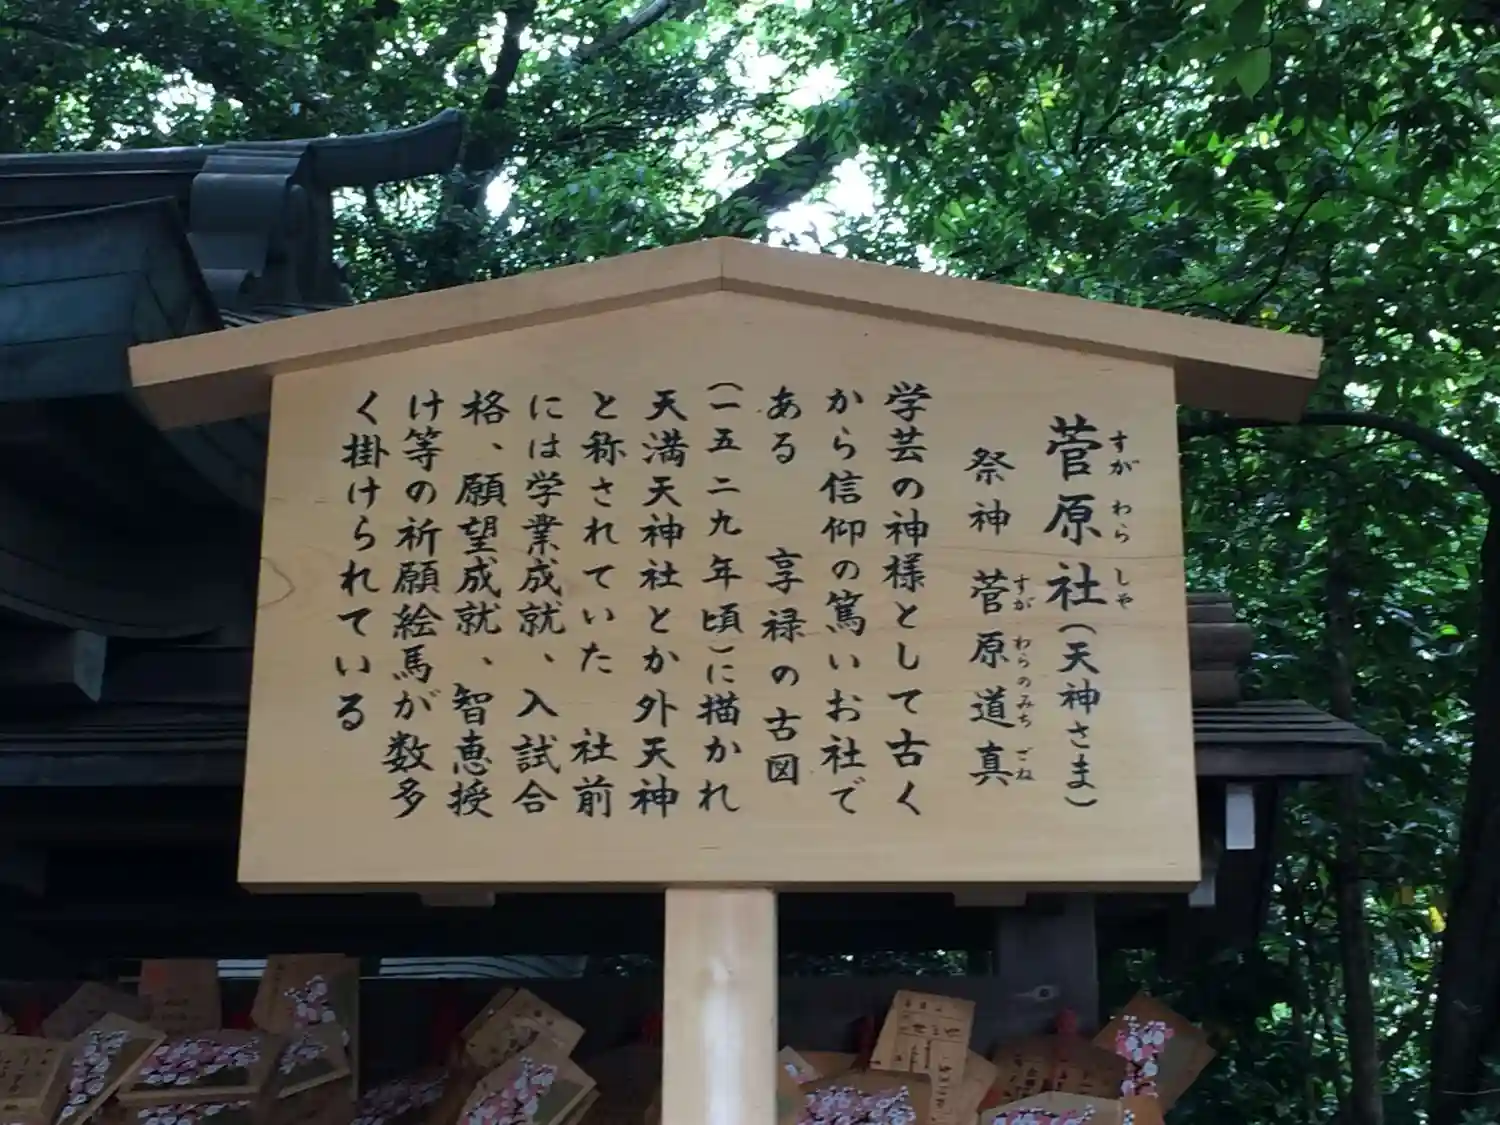 菅原社（天神さま）
すが わら しゃ
祭神 菅原道真
すが わらのみち ざね
学芸の神様として古く
から信仰の篤いお社で
ある 享禄の古図
（一五二九年頃）に描かれ
天満天神社とか外天神
と称されていた 社前
には学業成就、入試合
格、願望成就、智恵授
け等の祈願絵馬が数多
く掛けられている